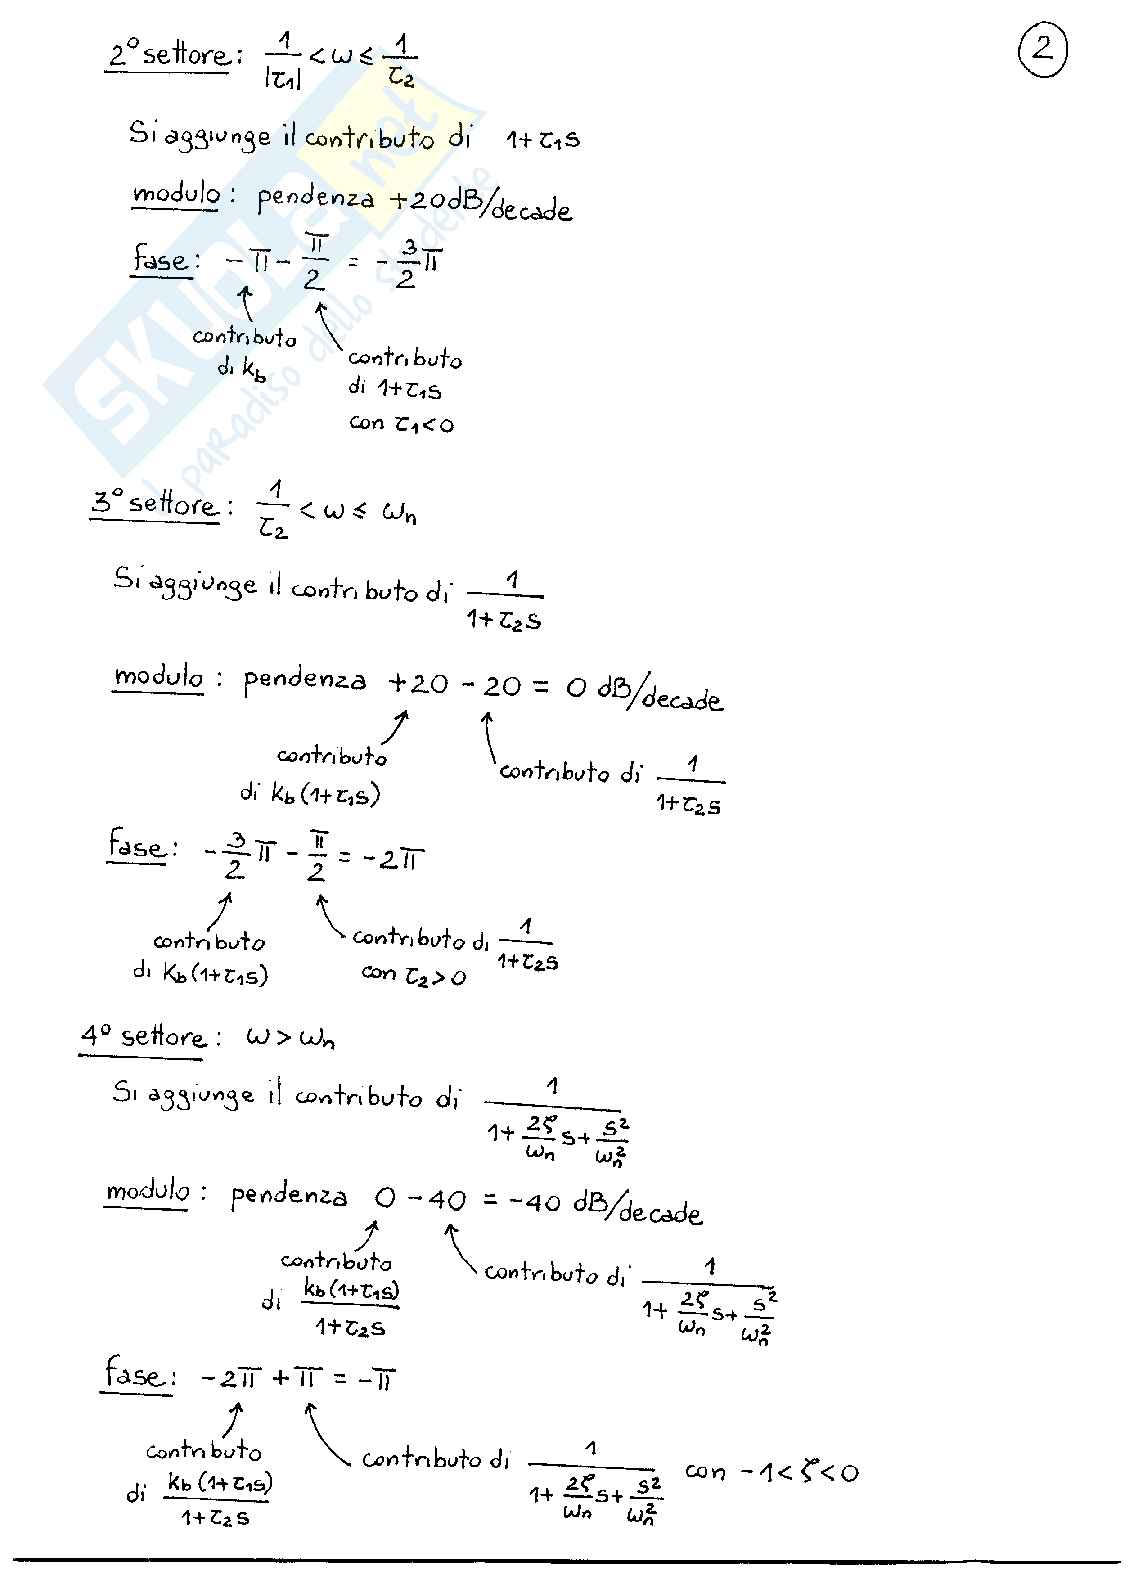 2
2° settore: 1/|τ1| < ω ≤ 1/τ2
Si aggiunge il contributo di 1+τ1s
modulo: pendenza +20dB/decade
fase: -π - π/2 = -3/2 π
contributo
di kb
contributo
di 1+τ1s
con τ1<0
3° settore: 1/τ2 < ω ≤ ωn
Si aggiunge il contributo di 1/(1+τ2s)
modulo: pendenza +20 - 20 = 0 dB/decade
contributo
di kb(1+τ1s)
contributo di 1/(1+τ2s)
fase: -3/2 π - π/2 = -2π
contributo
di kb(1+τ1s)
contributo di 1/(1+τ2s)
con τ2>0
4° settore: ω > ωn
Si aggiunge il contributo di 1/(1+ 2ζ/ωn s + s²/ωn²)
modulo: pendenza 0 - 40 = -40 dB/decade
contributo
di kb(1+τ1s)/(1+τ2s)
contributo di 1/(1+ 2ζ/ωn s + s²/ωn²)
fase: -2π + π = -π
contributo
di kb(1+τ1s)/(1+τ2s)
contributo di 1/(1+ 2ζ/ωn s + s²/ωn²) con -1<ζ<0
SKUOLA.net
il paradiso dello studente